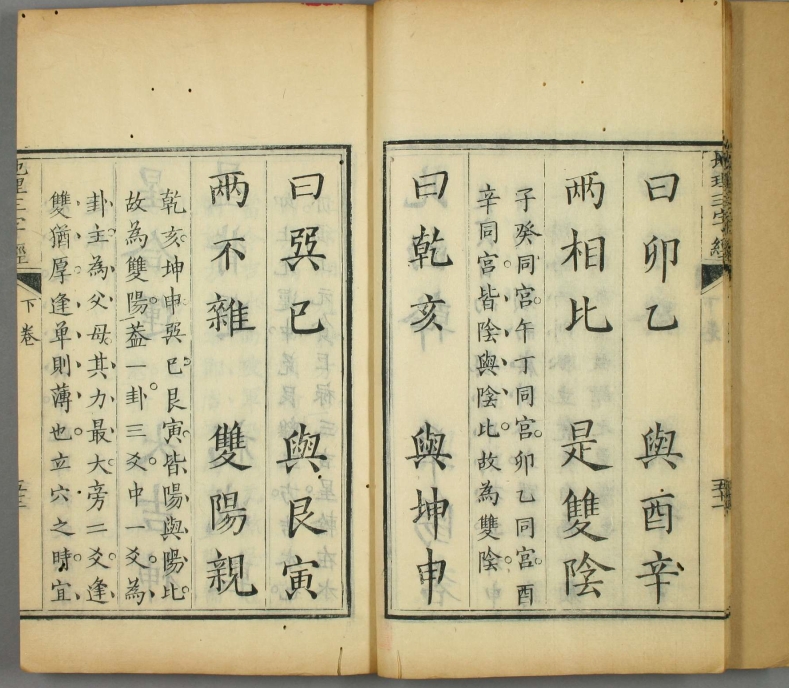 地理三字經
曰卯乙 與酉辛
两相比 是雙陰
子癸同宮午丁同宮卯乙同宮酉
辛同宮皆陰與陰比故為雙陰
曰乾亥 與坤申
曰巽巳 與艮寅
两不雜 雙陽親
乾亥坤申巽巳艮寅皆陽與陽比
故為雙陽葢一卦三爻中一爻為
卦主為父母其力最大旁二爻逢
雙猶厚逢单則薄也立穴之時宜
地理三字經
下卷